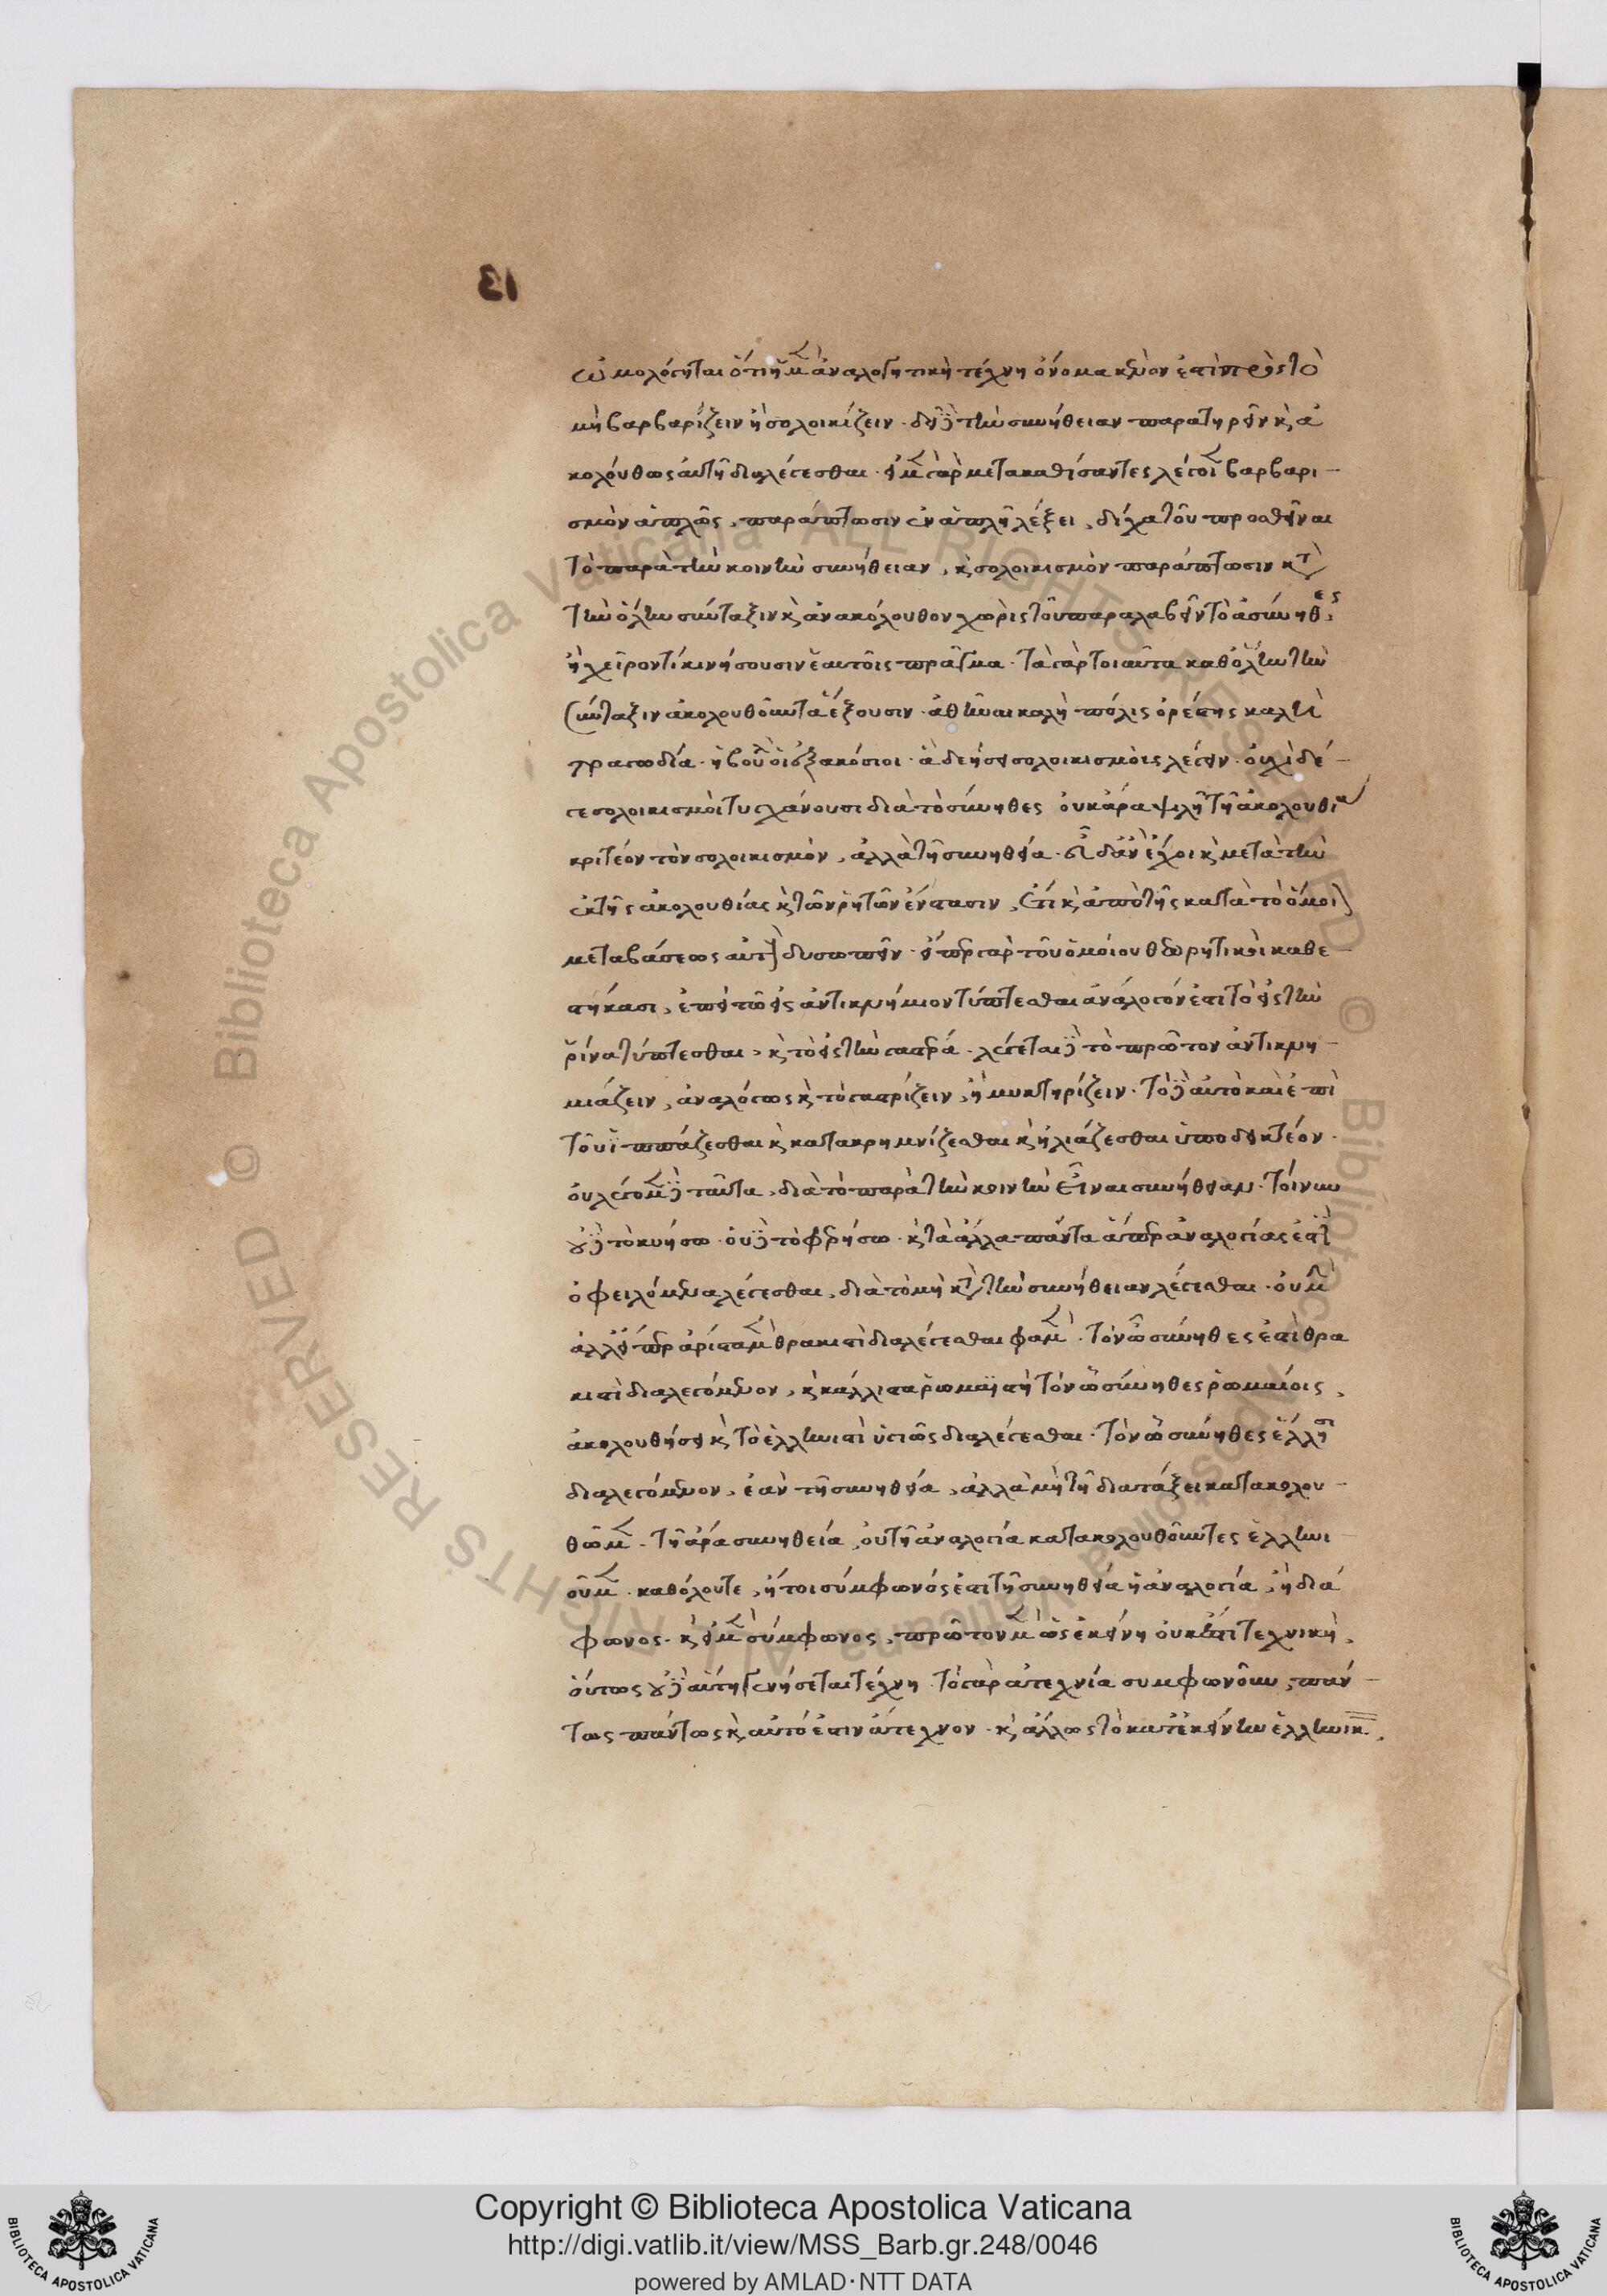 13
ὡμολόγηται ὅτι ἡ μὲν ἀναλογητικὴ τέχνη ὄνομα κενὸν ἐστὶ πρὸς τὸ
μὴ βαρβαρίζειν ἢ σολοικίζειν · δεῖ δὲ τὴν συνήθειαν παρατηρεῖν καὶ ἀ
κολούθως αὐτῇ διαλέγεσθαι · εἰ μὲν γὰρ μετακαθίσαντες λέγοιεν βαρβαρι-
σμὸν ἁπλῶς, παράπτωσιν ἐν ἁπλῇ λέξει, δίχα τοῦ προσθεῖναι
τὸ παρὰ τὴν κοινὴν συνήθειαν, καὶ σολοικισμὸν παράπτωσιν κατὰ
τὴν ὅλην σύνταξιν καὶ ἀνακόλουθον χωρὶς τοῦ παραλαβεῖν τὸ ἀσύνηθες,
ἢ χεῖρον τί κινήσουσιν ἑαυτοῖς πρᾶγμα · τὰ γὰρ τοιαῦτα καθ' ὅλην τὴν
σύνταξιν ἀκολουθοῦντα ἕξουσιν · ἀθῆναι καλὴ πόλις ὀρέστης καλὴ
τραγωδία · ἡ βουλὴ οἱ ἑξακόσιοι · ἃ δεήσει σολοικισμοὺς λέγειν · οὐχὶ δέ-
γε σολοικισμοὶ τυγχάνουσι διὰ τὸ σύνηθες οὐκ ἄρα ψιλῇ τῇ ἀκολουθίᾳ
κριτέον τὸν σολοικισμὸν, ἀλλὰ τῇ συνηθείᾳ · εὖ δ' ἂν ἔχοι καὶ μετὰ τὴν
ἐκ τῆς ἀκολουθίας καὶ τῶν ῥητῶν ἔνστασιν, ἔτι καὶ ἀπὸ τῆς κατὰ τὸ ὅμοιον
μεταβάσεως αὐτοὺς δυσωπεῖν · εἴπερ γὰρ τοῦ ὁμοίου θεωρητικοὶ καθε-
στήκασι, ἐπεὶ τῷ εἰς ἀντικνήμιον τύπτεσθαι ἀνάλογόν ἐστι τὸ εἰς τὴν
ῥίνα τύπτεσθαι, καὶ τὸ εἰς τὴν γαστέρα · λέγεται δὲ τὸ πρῶτον ἀντικνη-
μιάζειν, ἀναλόγως καὶ τὸ γαστρίζειν, ἢ μυκτηρίζειν · τὸ δὲ αὐτὸ καὶ ἐπὶ
τοῦ ἱππάζεσθαι καὶ κατακρημνίζεσθαι καὶ ἡλιάζεσθαι ὑποδεικτέον ·
οὐ λέγομεν δὲ ταῦτα, διὰ τὸ παρὰ τὴν κοινὴν εἶναι συνήθειαν · τοίνυν
οὐδὲ τὸ κυήσω · οὐδὲ τὸ φερήσω · καὶ τὰ ἄλλα πάντα ἅπερ ἀναλογίας ἐστὶ
ὀφειλόμενα λέγεσθαι, διὰ τὸ μὴ κατὰ τὴν συνήθειαν λέγεσθαι · οὐ μὴν
ἀλλ' εἴπερ ἄριστα μὲν θρακιστὶ διαλέγεσθαι φαμὲν · τὸν ὡς σύνηθες ἐστὶ θρα
κιστὶ διαλεγόμενον, καὶ κάλλιστα ῥωμαϊστὴ τὸν ὡς σύνηθες ῥωμαίοις,
ἀκολουθήσει καὶ τὸ ἑλληνιστὶ ὑγιῶς διαλέγεσθαι · τὸν ὡς σύνηθες ἕλλησι
διαλεγόμενον, ἐὰν τῇ συνηθείᾳ, ἀλλὰ μὴ τῇ διατάξει κατακολου-
θῶμεν · τῇ ἄρα συνηθείᾳ, οὐ τῇ ἀναλογίᾳ κατακολουθοῦντες ἑλληνι
οῦμεν · καθόλου τε, ἤτοι σύμφωνός ἐστι τῇ συνηθείᾳ ἡ ἀναλογία, ἢ διά
φωνος · καὶ εἰ μὲν σύμφωνος, πρῶτον μὲν ὡς ἐκείνη οὐκ ἔστι τεχνικὴ,
οὕτως οὐδὲ αὕτη γενήσεται τέχνη · τὸ γὰρ ἀτεχνίᾳ συμφωνοῦν, πάν-
τως πάντως καὶ αὐτό ἐστιν ἄτεχνον · καὶ ἄλλως τὸ κατ' ἐκείνην ἑλληνικ.
Copyright © Biblioteca Apostolica Vaticana
http://digi.vatlib.it/view/MSS_Barb.gr.248/0046
powered by AMLAD·NTT DATA